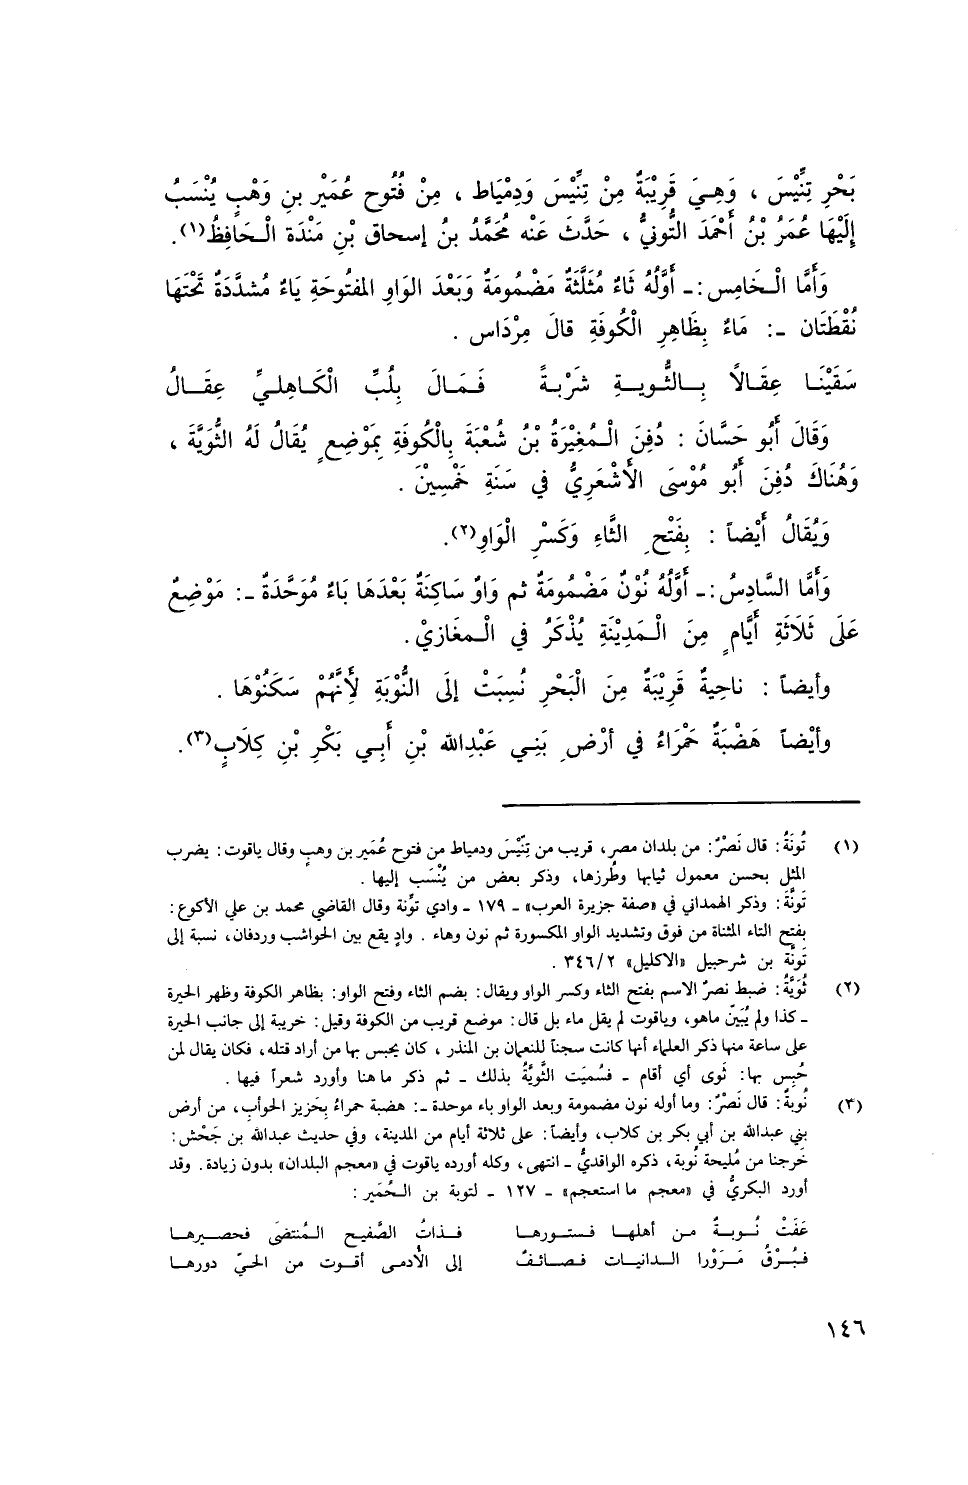 بَحْرِ تِنِّيْسَ ، وَهِيَ قَرِيْبَةٌ مِنْ تِنِّيْسَ وَدِمْيَاط ، مِنْ فُتُوح عُمَيْر بنِ وَهْبٍ يُنْسَبُ
إِلَيْهَا عُمَرُ بْنُ أَحْمَدَ التُّونِيُّ ، حَدَّثَ عَنْه مُحَمَّدُ بنُ إسحاق بْنِ مَنْدَة الْحَافِظُ(١).
وَأَمَّا الْخَامِس :ـ أَوَّلُهُ ثَاءٌ مُثَلَّثَةٌ مَضْمُومَةٌ وَبَعْدَ الوَاوِ المفْتُوحَةِ يَاءٌ مُشدَّدَةٌ تَحْتَهَا
نُقْطَتَان ـ: مَاءٌ بِظَاهِرِ الْكُوفَةِ قالَ مِرْدَاس .
سَقَيْنَا عِقَالاً بِالثُّوِيةِ شَرْبَةً فَمَالَ بِلُبِّ الْكَاهِلِيِّ عِقَالُ
وَقَالَ أَبُو حَسَّانَ : دُفِنَ الْمُغِيْرَةُ بْنُ شُعْبَةَ بِالْكُوفَةِ بِمَوْضِعٍ يُقَالُ لَهُ الثُّوَيَّةَ ،
وَهُنَاكَ دُفِنَ أَبُو مُوْسَى الأَشْعَرِيُّ في سَنَةِ خَمْسِيْنَ .
وَيُقَالُ أَيْضاً : بِفَتْحِ الثَّاءِ وَكَسْرِ الْوَاوِ(٢).
وَأَمَّا السَّادِسُ :ـ أَوَّلُهُ نُوْنٌ مَضْمُومَةٌ ثم وَاوٌ سَاكِنَةٌ بَعْدَهَا بَاءٌ مُوَحَّدَةٌ ـ: مَوْضِعٌ
عَلَى ثَلَاثَةِ أَيَّامٍ مِنَ الْمَدِيْنَةِ يُذْكَرُ في الْمغَازِيْ.
وأيضاً : ناحِيةٌ قَرِيْبَةٌ مِنَ الْبَحْرِ نُسِبَتْ إلَى النُّوْبَةِ لِأَنَّهُمْ سَكَنُوْهَا .
وأيْضاً هَضْبَةٌ حَمْرَاءُ في أرْضِ بَنِي عَبْدِالله بْنِ أَبِي بَكْرِ بْنِ كِلَابٍ(٣).
(١) تُونَةُ : قال نَصْرٌ : من بلدان مصر، قريب من تِنِّيْسَ ودمياط من فتوح عُمَير بن وهبٍ وقال ياقوت : يضرب
المثل بحسن معمول ثيابها وطُرزها، وذكر بعض من يُنْسَب إليها .
تَونَّةَ : وذكر الهمداني في «صفة جزيرة العرب» ـ ١٧٩ ـ وادي تَوَّنة وقال القاضي محمد بن علي الأكوع :
بفتح التاء المثناة من فوق وتشديد الواو المكسورة ثم نون وهاء . وادٍ يقع بين الحواشب وردفان، نسبة إلى
تَونَّة بن شرحبيل «الاكليل» ٣٤٦/٢ .
(٢) ثُوَيَّةُ : ضبط نصرٌ الاسم بفتح الثاء وكسر الواو ويقال : بضم الثاء وفتح الواو : بظاهر الكوفة وظهر الحيرة
ـ كذا ولم يُبَيّن ماهو، وياقوت لم يقل ماء بل قال : موضع قريب من الكوفة وقيل : خريبة إلى جانب الحيرة
على ساعة منها ذكر العلماء أنها كانت سجناً للنعمان بن المنذر ، كان يحبس بها من أراد قتله ، فكان يقال لمن
حُبِس بها : ثَوى أي أقام ـ فسُميَت الثَّويَّةُ بذلك ـ ثم ذكر ما هنا وأورد شعراً فيها .
(٣) نُوبةُ : قال نَصْرٌ : وما أوله نون مضمومة وبعد الواو باء موحدة ـ: هضبة حمراءُ بحَزيز الحوأب، من أرض
بني عبدالله بن أبي بكر بن كلاب، وأيضاً : على ثلاثة أيام من المدينة، وفي حديث عبدالله بن جَحْش :
خرجنا من مُليحة نُوبة، ذكره الواقديُّ ـ انتهى ، وكله أورده ياقوت في «معجم البلدان» بدون زيادة . وقد
أورد البكريُّ في «معجم ما استعجم» ـ ١٢٧ ـ لتوبة بن الحُمَير :
عَفَتْ نُوبةٌ من أهلها فستورها فذاتُ الصَّفيح المُنتضَى فحصيرها
فبُرْقُ مَرَوْرا الدانيات فصائفٌ إلى الأدمى أقوت من الحيّ دورها
١٤٦